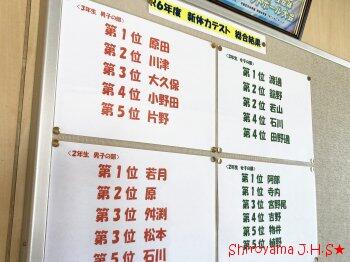 26年度 新体力テスト 総合結果
<3年生 男子の部>
第1位 原田
第2位 川津
第3位 大久保
第4位 小野田
第5位 片野
第1位 渡邉
第2位 脇野
第2位 若山
第4位 石川
第4位 田野邉
<2年生 男子の部>
第1位 若月
第2位 原
第3位 舛渕
第3位 松本
第5位 石川
第1位 阿部
第1位 寺内
第3位 宮野尾
第4位 吉野
第5位 物井
第5位 植野
Shiroyama J.H.S★